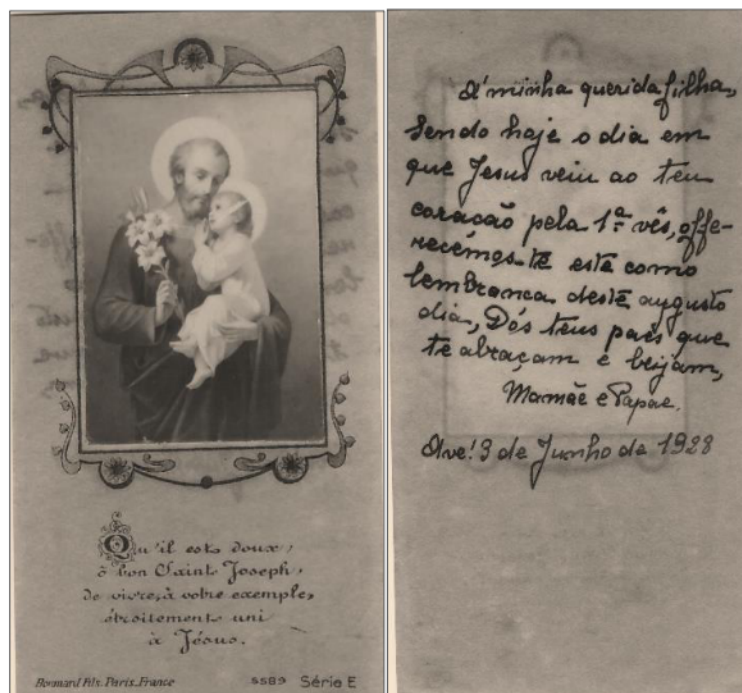 Qu'il est doux,
ô bon Saint Joseph,
de vivre, à votre exemple,
étroitement uni
à Jésus.
Bonnard Fils. Paris. France
5589 Série E
A' minha querida filha,
Sendo hoje o dia em
que Jesus veiu ao teu
coração pela 1ª vês, offe-
recémos-te este como
lembranca deste augusto
dia, Dós teus paes que
te abraçam e beijam,
Mamãe e Papae.
Ave! 3 de Junho de 1928